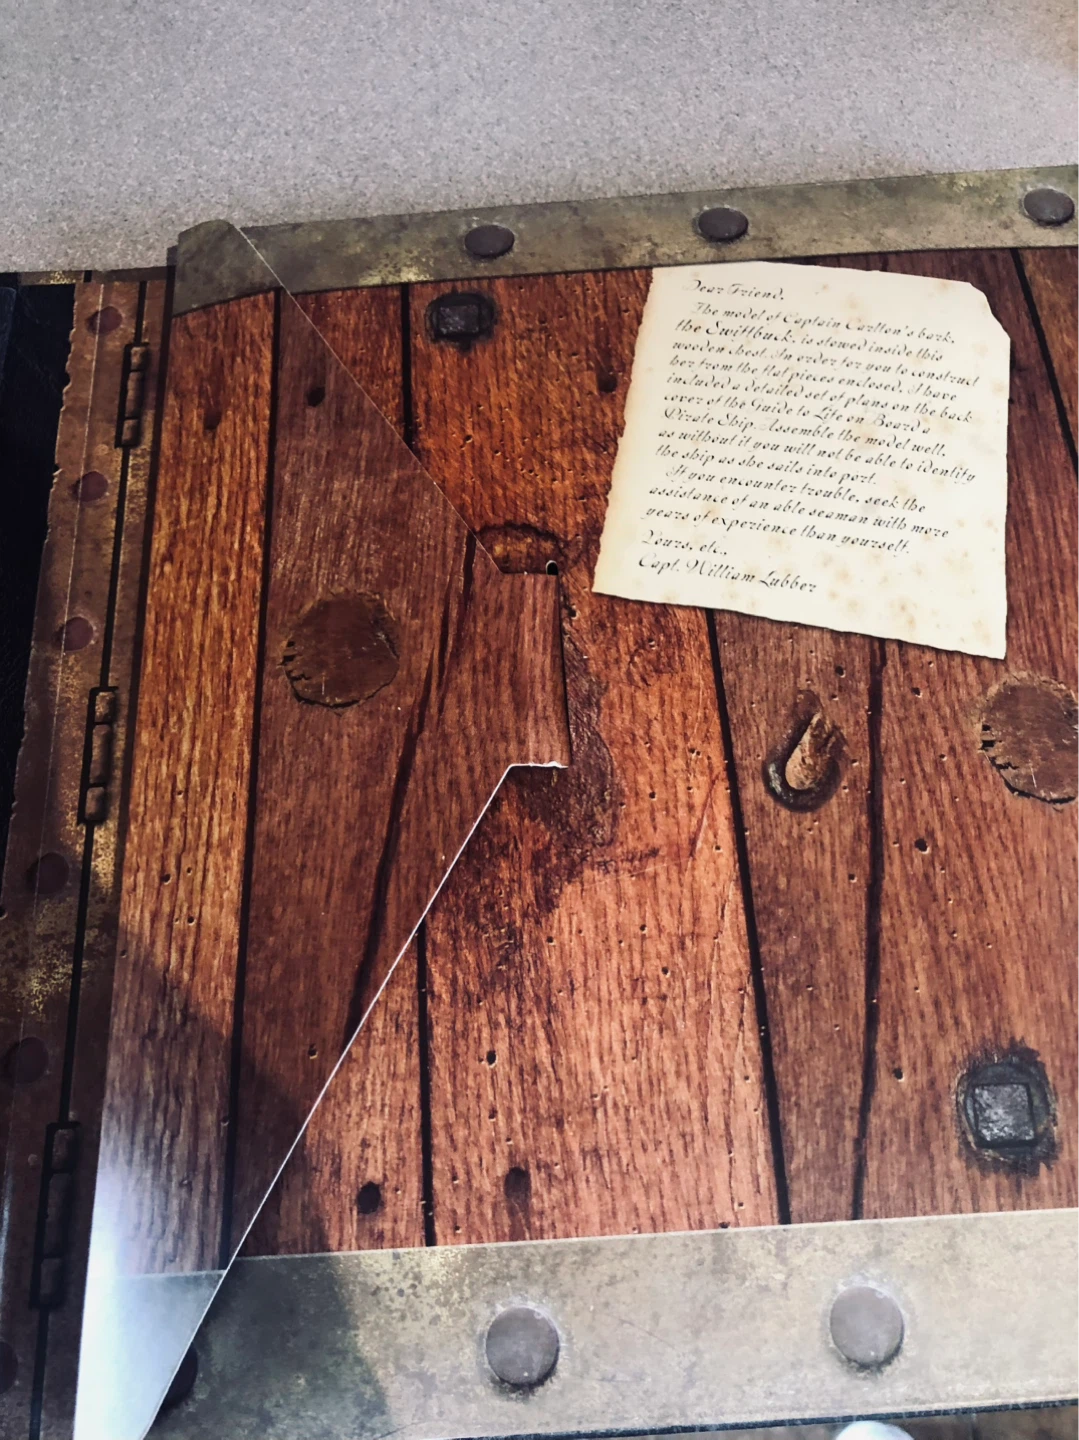 Dear Friend,
The model of Captain Carlton's bark,
the Swiftbuck, is stowed inside this
wooden chest. In order for you to construct
her from the flat pieces enclosed, I have
included a detailed set of plans on the back
cover of the Guide to Life on Board a
Pirate Ship. Assemble the model well,
as without it you will not be able to identify
the ship as she sails into port.
If you encounter trouble, seek the
assistance of an able seaman with more
years of experience than yourself.
Yours, etc.,
Capt. William Lubber